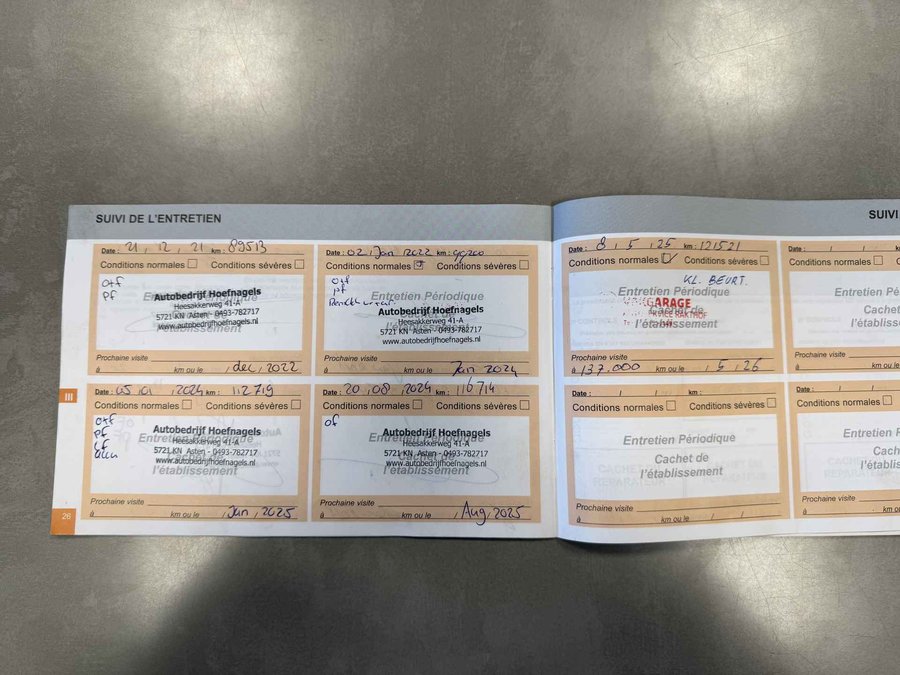 SUIVI DE L'ENTRETIEN
Date : 21 , 12 , 21 km : 89513
Conditions normales Conditions sévères
O+f
Pf
Entretien Périodique
Autobedrijf Hoefnagels
Heesakkerweg 41-A
5721 KN Asten - 0493-782717
www.autobedrijfhoefnagels.nl
l'établissement
Prochaine visite
à km ou le , dec, 2022
Date : 02, Jan 2022 km :
Conditions normales Conditions sévères
O+f
Pf
Entretien Périodique
Autobedrijf Hoefnagels
Heesakkerweg 41-A
5721 KN Asten - 0493-782717
www.autobedrijfhoefnagels.nl
l'établissement
Prochaine visite
à km ou le Jan 2024
Date : 05 , 01 , 2024 km : 112719
Conditions normales Conditions sévères
O+f
Pf
Entretien Périodique
Autobedrijf Hoefnagels
Heesakkerweg 41-A
5721 KN Asten - 0493-782717
www.autobedrijfhoefnagels.nl
l'établissement
Prochaine visite
à km ou le , Jan , 2025
Date : 20 , 08 , 2024 km : 116714
Conditions normales Conditions sévères
of
Entretien Périodique
Autobedrijf Hoefnagels
Heesakkerweg 41-A
5721 KN Asten - 0493-782717
www.autobedrijfhoefnagels.nl
l'établissement
Prochaine visite
à km ou le , Aug, 2025
III
26
SUIVI
Date : 8 , 5 , 25 km : 121521
Conditions normales Conditions sévères
KL. BEURT.
Entretien Périodique
GARAGE
Cachet de
l'établissement
Prochaine visite
à 137.000 km ou le , 5 , 26
Date : / / km :
Conditions normales
Entretien Pér
Cachet
l'établiss
Prochaine visite
à km ou
Date : / / km :
Conditions normales Conditions sévères
Entretien Périodique
Cachet de
l'établissement
Prochaine visite
à km ou le / /
Date : / / km :
Conditions normales
Entretien Pé
Cach
l'établis
Prochaine visite
à km ou